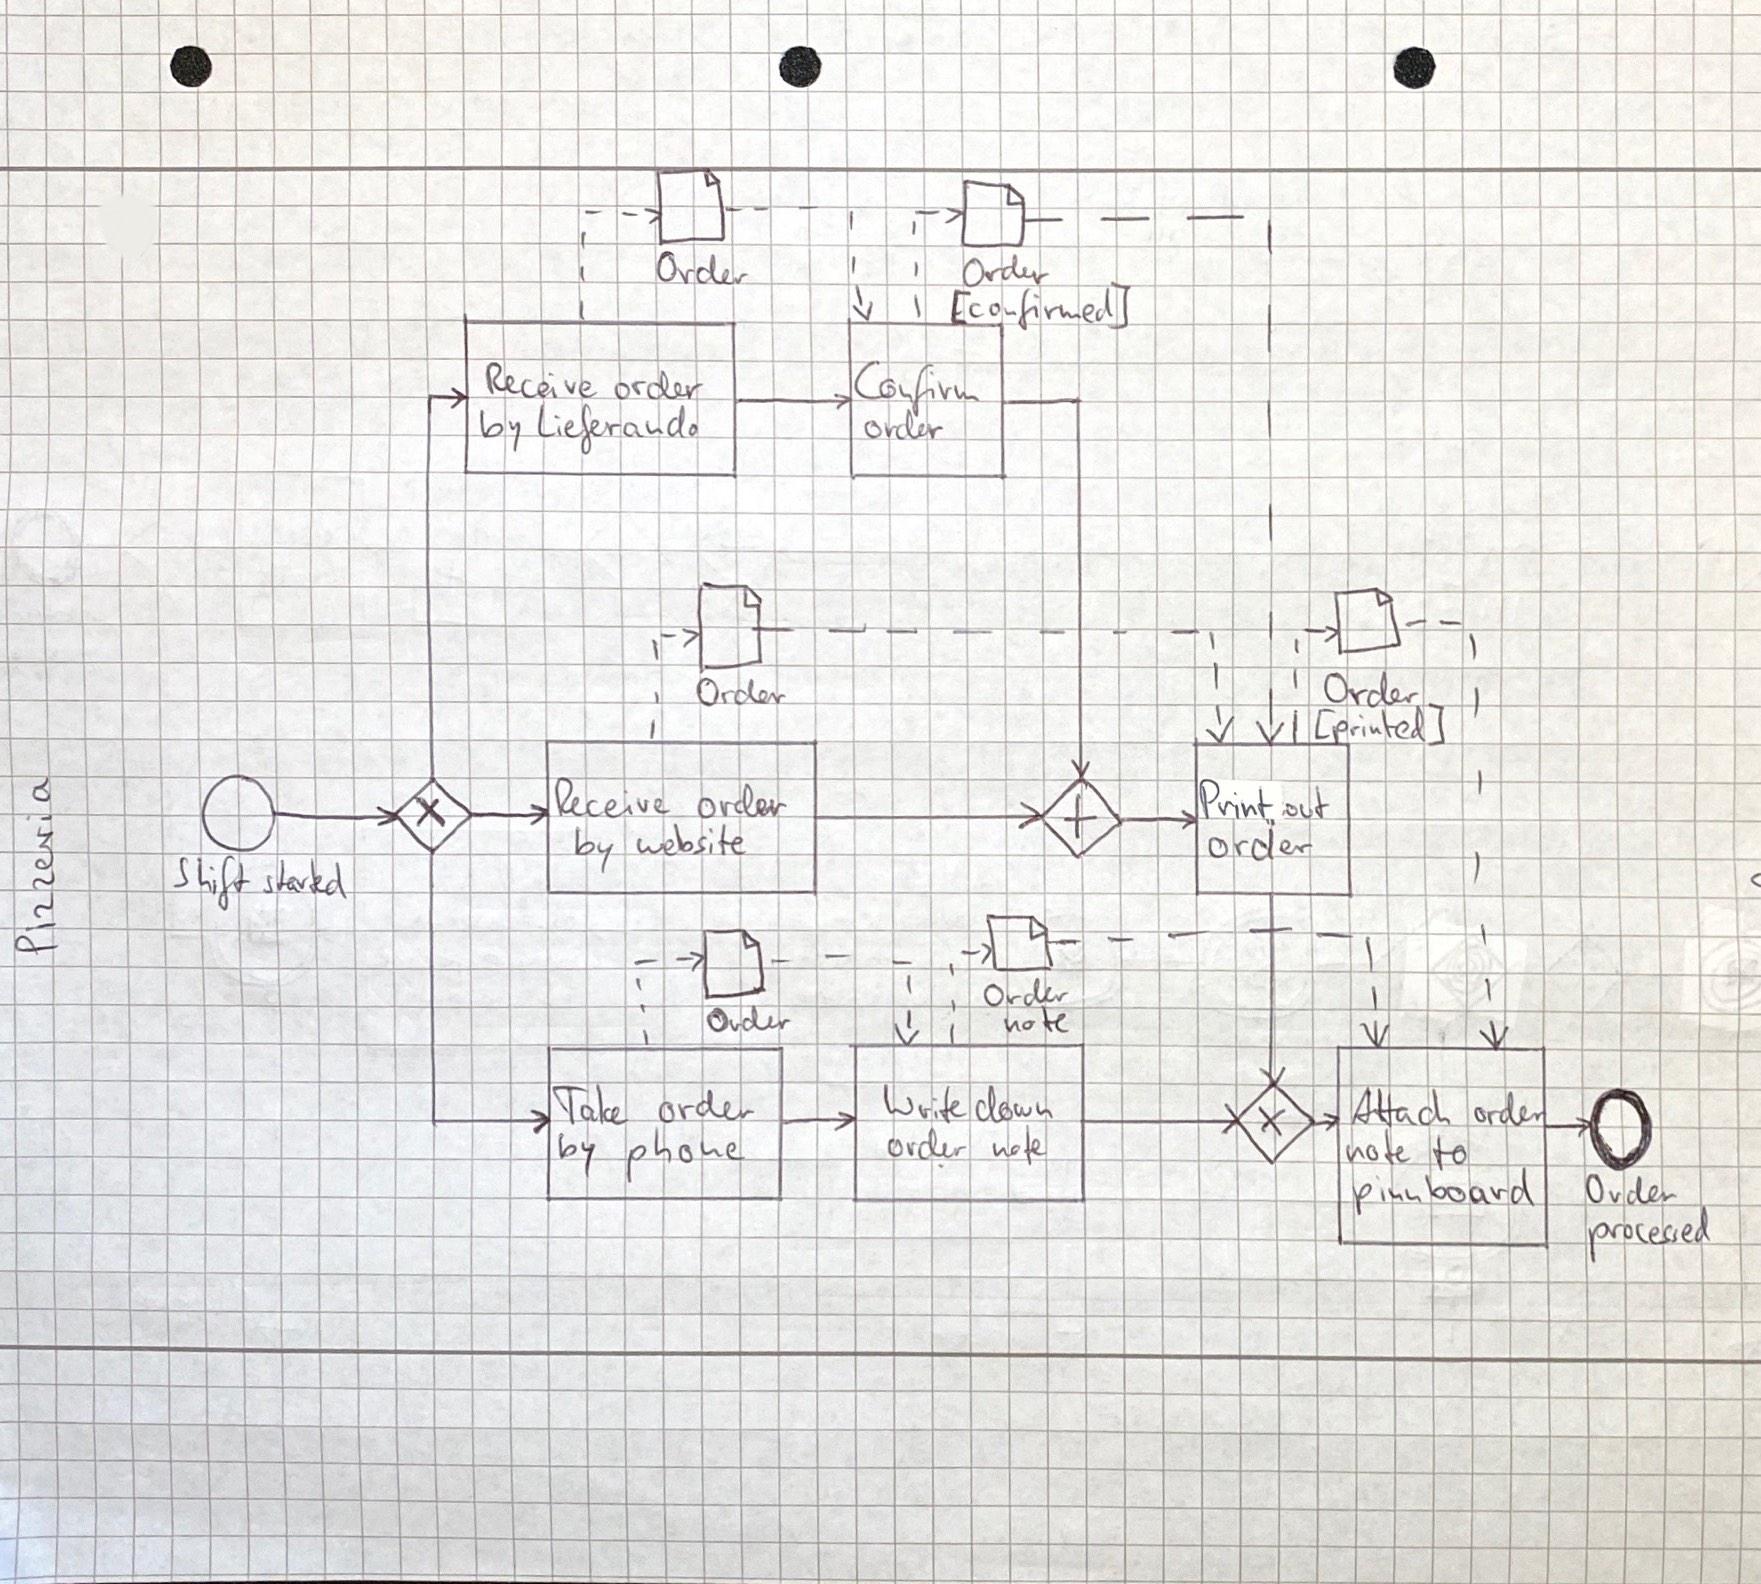 Order
Order
[confirmed]
Receive order
by Lieferando
Confirm
order
Order
Order
[printed]
Receive order
by website
Print out
order
Shift started
Pizzeria
Order
Order
note
Take order
by phone
Write down
order note
Attach order
note to
pinnboard
Order
processed